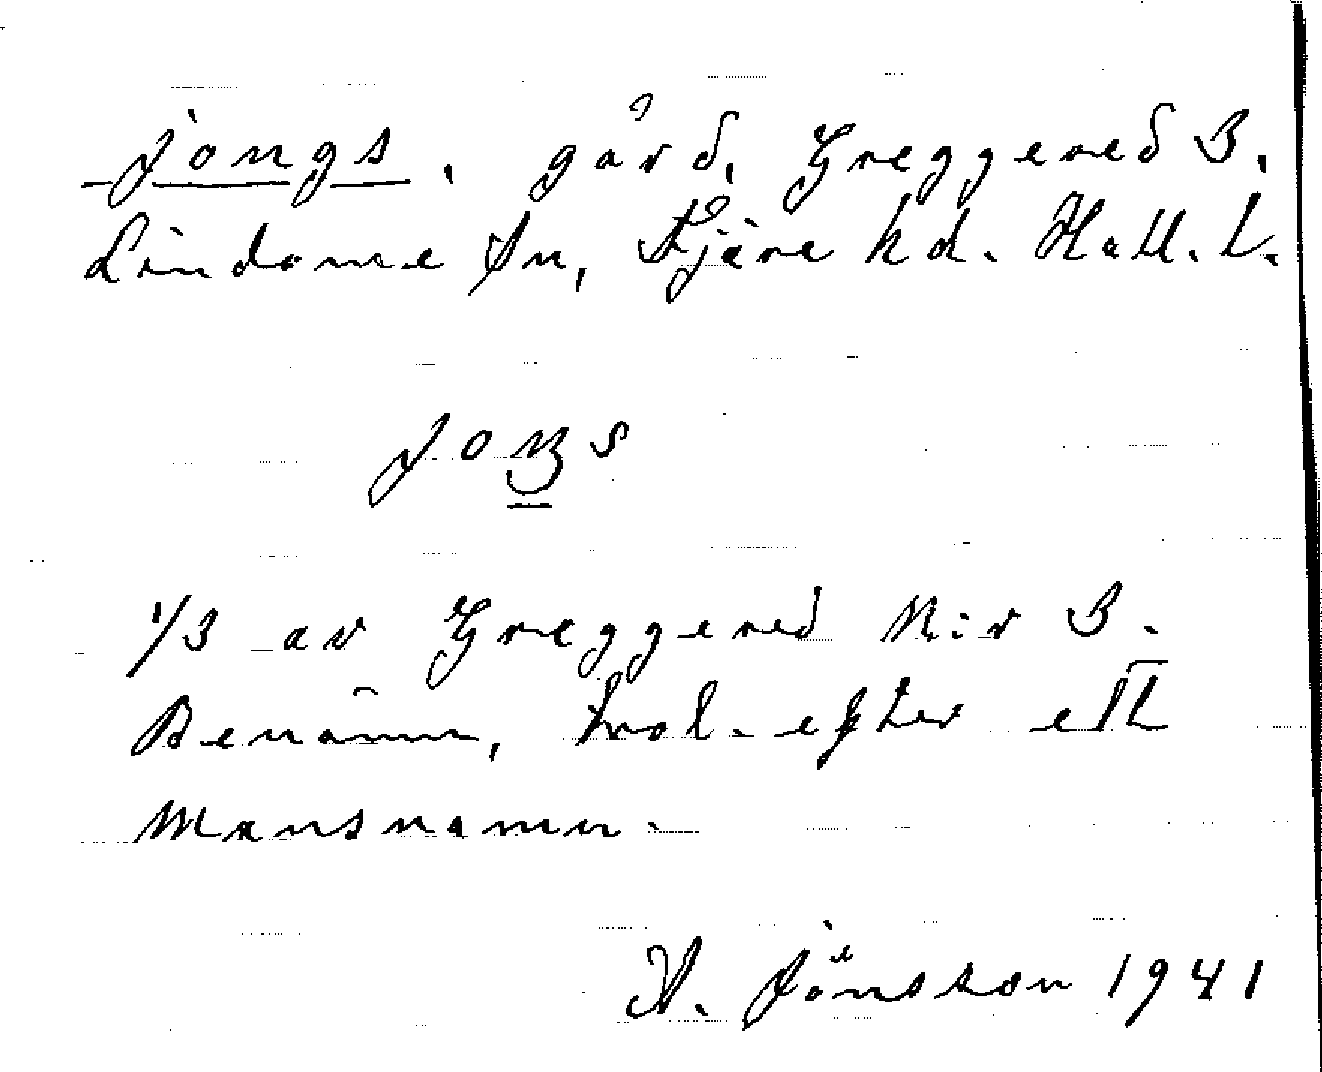 Jongs, gård, Greggered 3.
Lindome sn, Fjäre hd. Hall. l.
joŋs
1/3 av Greggered N:r 3.
Benämn, trol. efter ett
Mansnamn.
A. Jönsson 1941